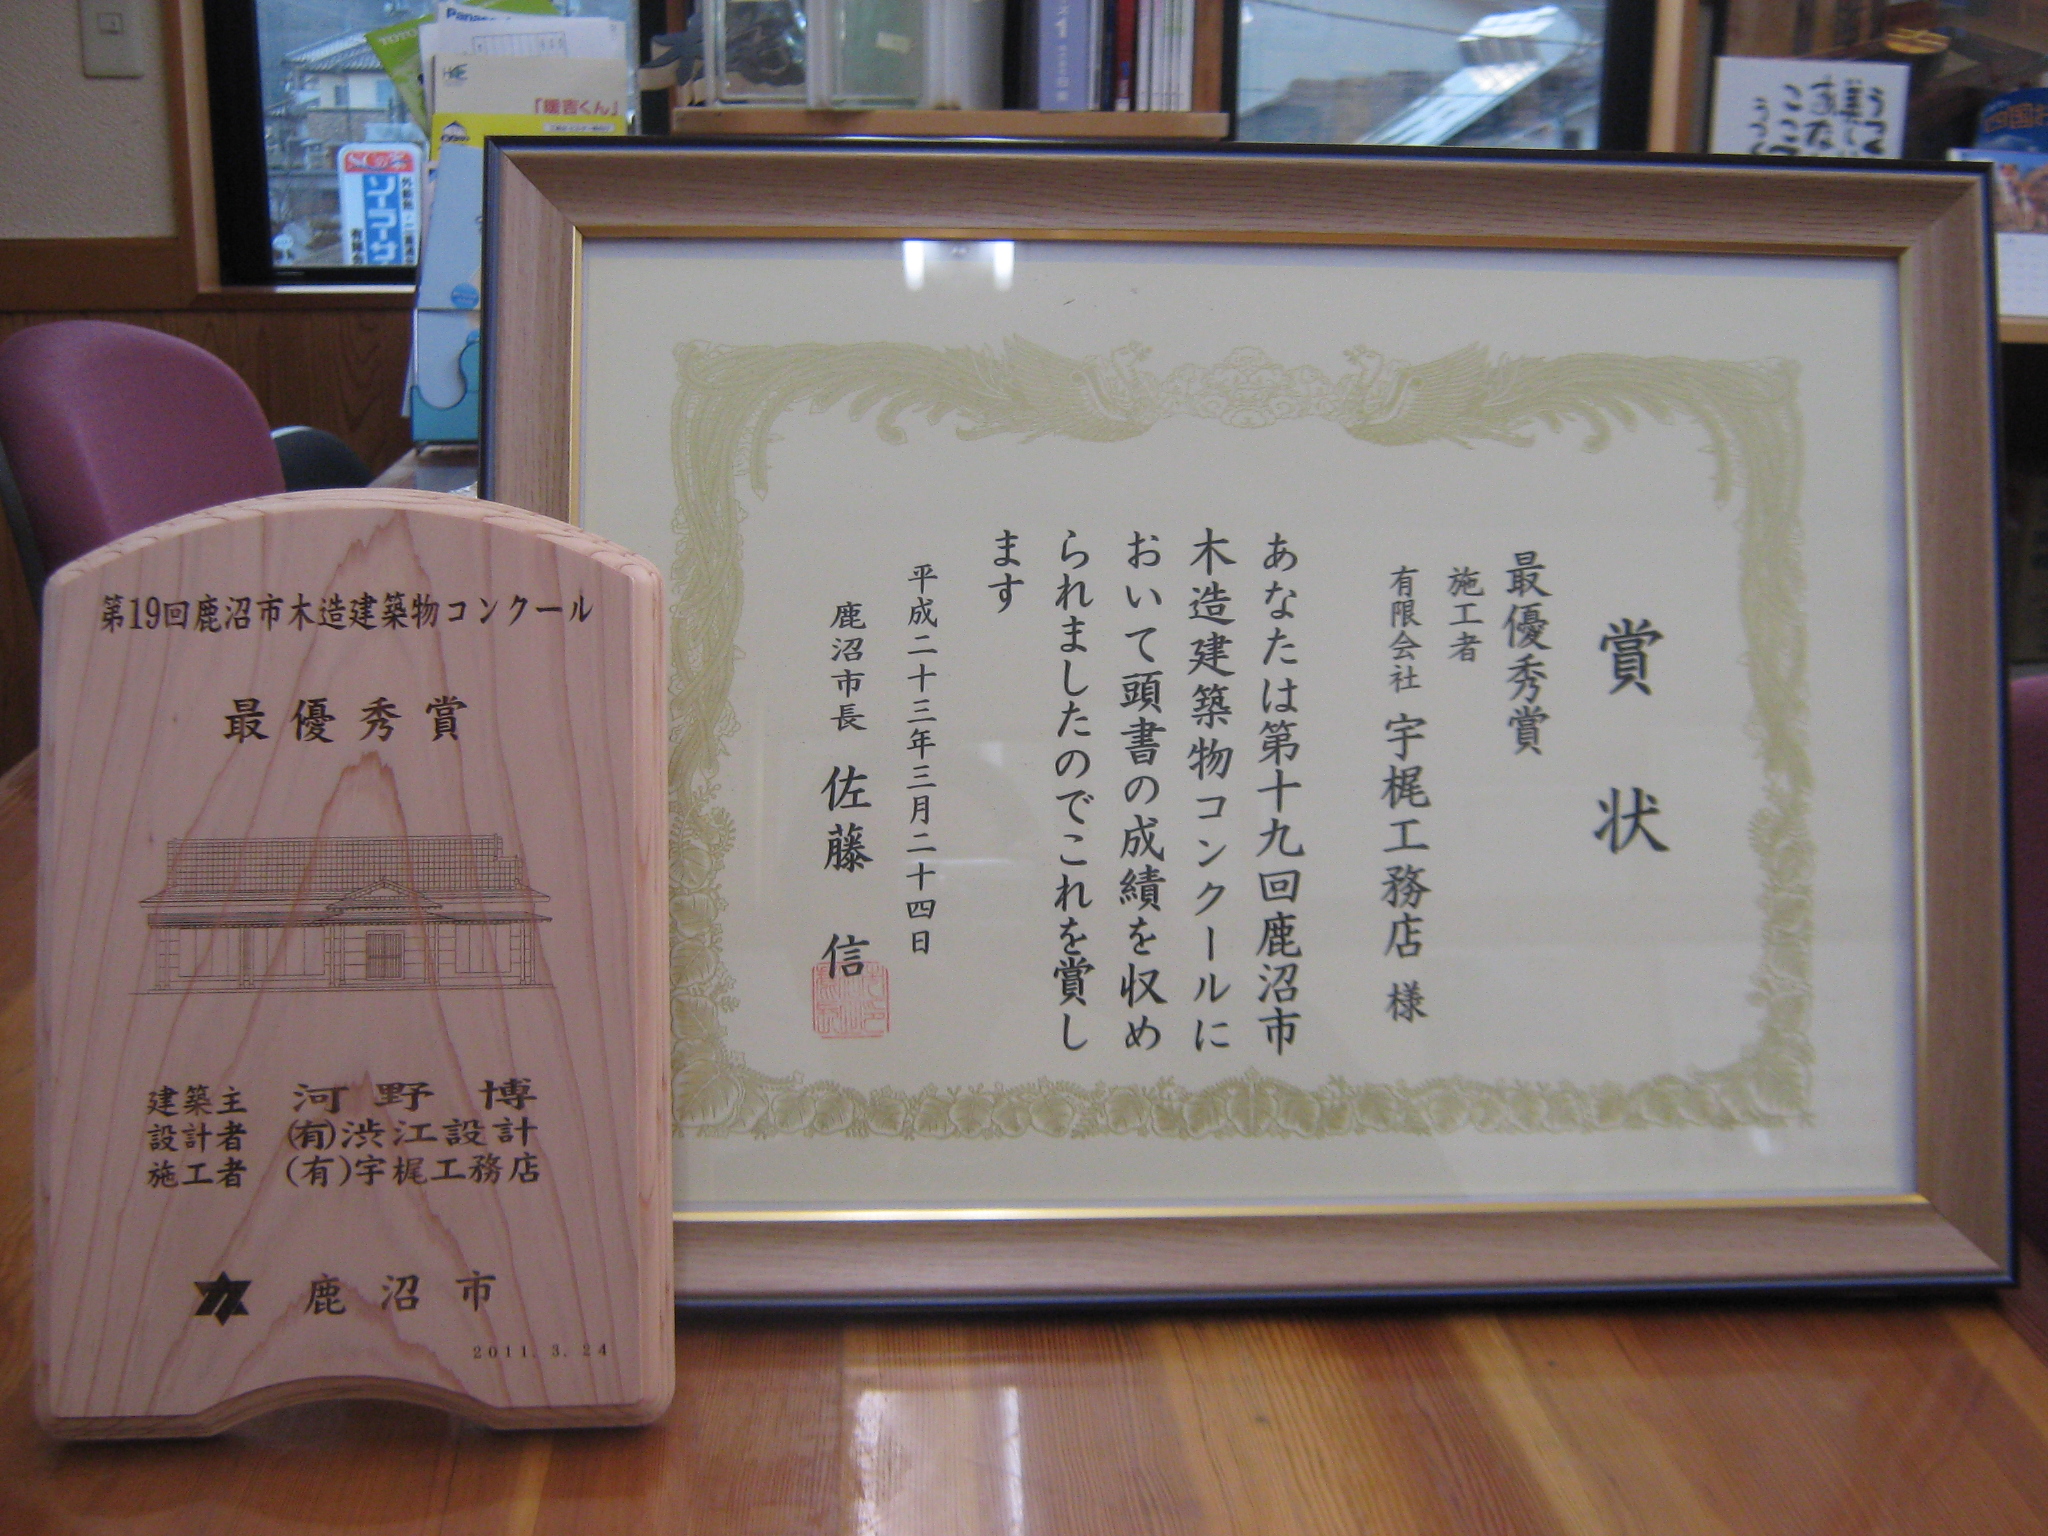 第19回鹿沼市木造建築物コンクール
最優秀賞
建築主 河野 博
設計者 (有)渋江設計
施工者 (有)宇梶工務店
鹿沼市
2011.3.24
賞状
最優秀賞
施工者
有限会社 宇梶工務店 様
あなたは第十九回鹿沼市
木造建築物コンクールに
おいて頭書の成績を収め
られましたのでこれを賞し
ます
平成二十三年三月二十四日
鹿沼市長 佐藤 信
TOTO
「暖吉くん」